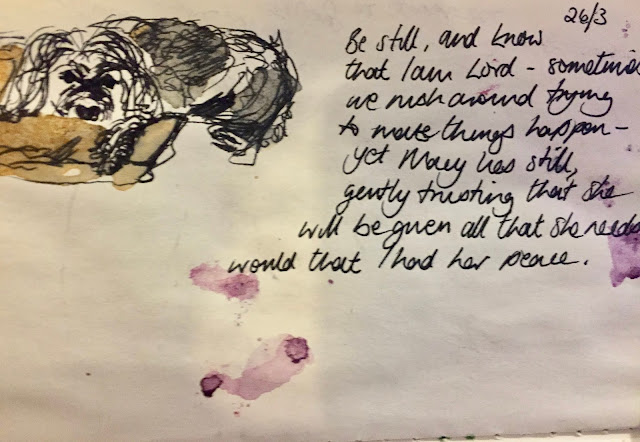 26/3
Be still, and know
that I am Lord - sometimes
we rush around trying
to make things happen -
yet Mary lies still,
gently trusting that she
will be given all that she needs
would that I had her peace.